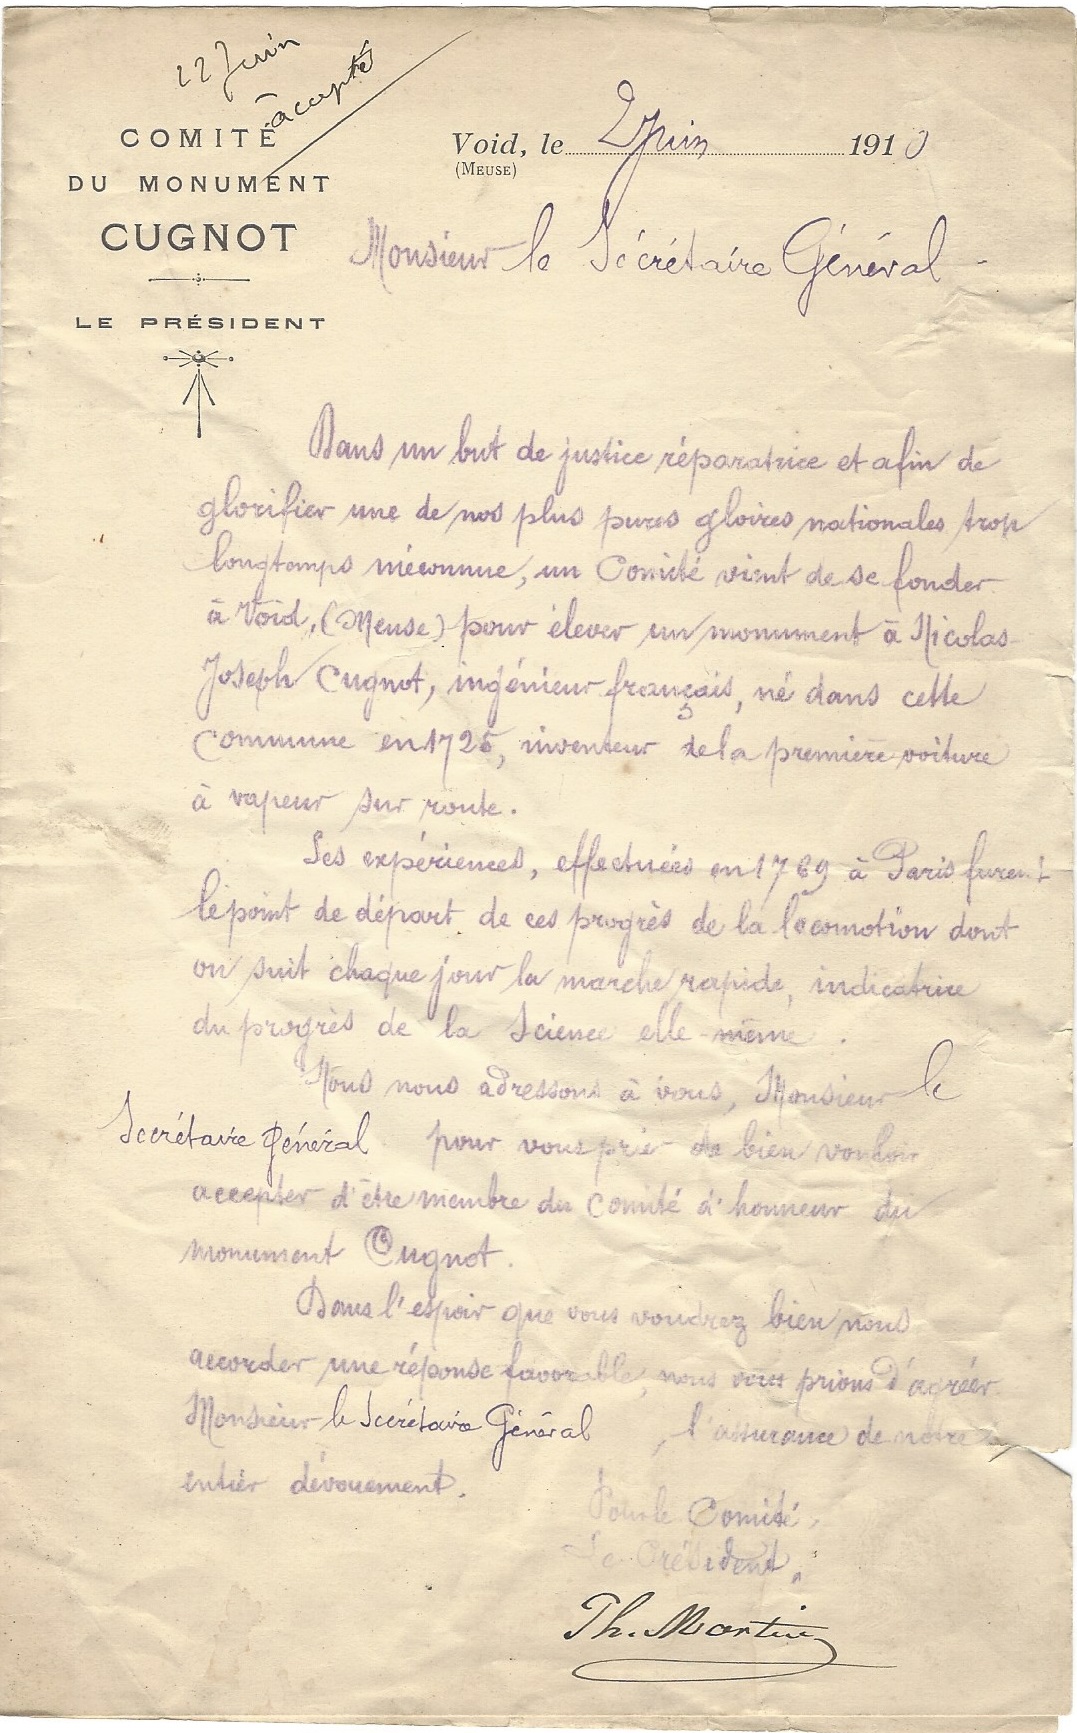 22 Juin
accepté
COMITÉ
DU MONUMENT
CUGNOT
LE PRÉSIDENT
Void, le 2 Juin 1910
(MEUSE)
Monsieur le Sécrétaire Général
Dans un but de justice réparatrice et afin de
glorifier une de nos plus pures gloires nationales trop
longtemps méconnue, un Comité vient de se fonder
à Void, (Meuse) pour élever un monument à Nicolas-
Joseph Cugnot, ingénieur français, né dans cette
Commune en 1725, inventeur de la première voiture
à vapeur sur route.
Ses expériences, effectuées en 1769 à Paris furent
le point de départ de ces progrès de la locomotion dont
on suit chaque jour la marche rapide, indicatrice
du progrès de la Science elle-même.
Nous nous adressons à vous, Monsieur le
Secrétaire Général pour vous prier de bien vouloir
accepter d'être membre du Comité d'honneur du
monument Cugnot.
Dans l'espoir que vous voudrez bien nous
accorder une réponse favorable, nous vous prions d'agréer
Monsieur le Secrétaire Général, l'assurance de notre
entier dévouement.
Pour le Comité,
Le Président,
Th. Martin